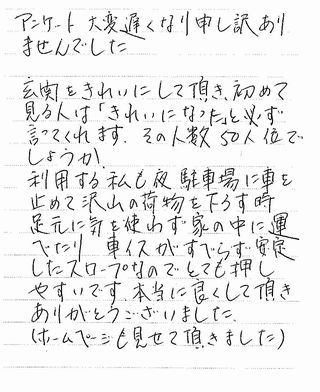 アンケート 大変遅くなり申し訳あり
ませんでした
玄関をきれいにして頂き、初めて
見る人は「きれいになった」と必ず
言ってくれます。その人数50人位で
しょうか。
利用する私も夜 駐車場に車を
止めて沢山の荷物を下ろす時
足元に気を使わず家の中に運
べたり 車イスがすべらず安定
したスロープなのでとても押し
やすいです。本当に良くして頂き
ありがとうございました。
(ホームページも見せて頂きました)